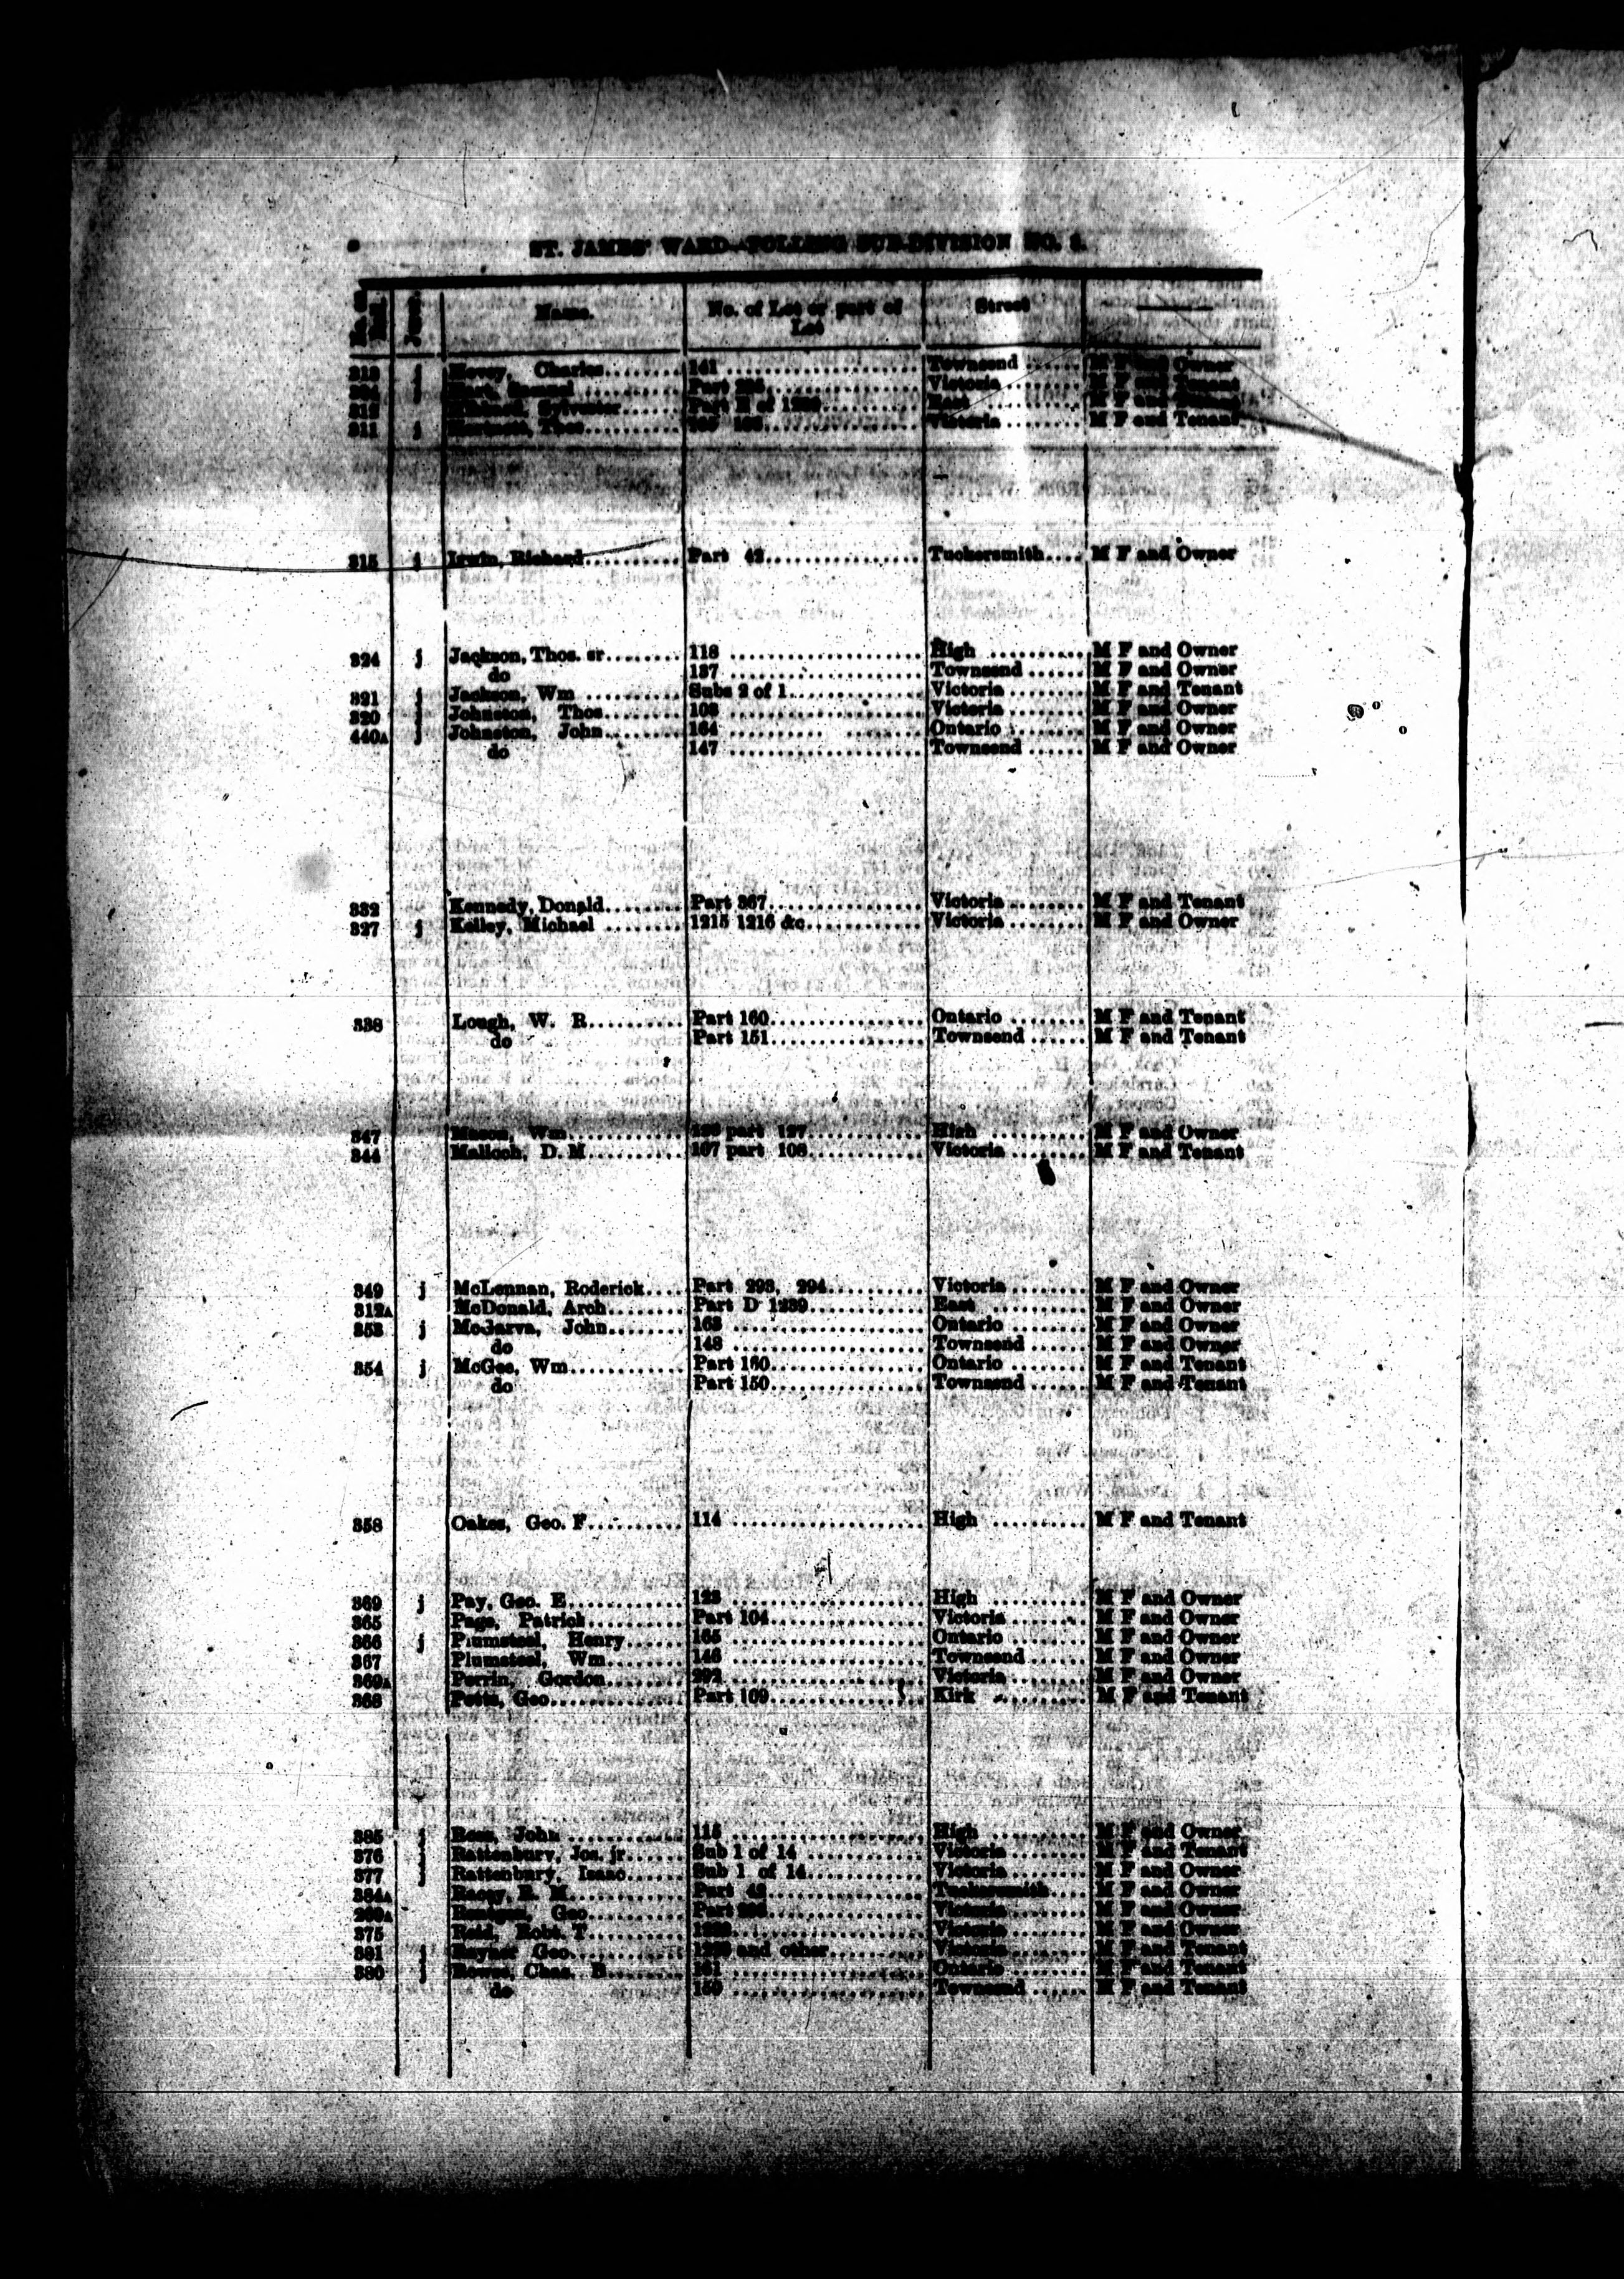 ST. JAMES' WARD—POLLING SUB-DIVISION NO.
Name. No. of Lot or part of Lot Street
j Charles 141 Townsend M F and Owner
Part Victoria M F and Tenant
312 Part of East M F and
311 j Thos Victoria M F and Tenant
315 j Irwin, Richard Part 42 Tuckersmith M F and Owner
324 j Jackson, Thos. sr 118 High M F and Owner
do 137 Townsend M F and Owner
321 j Jackson, Wm Subs 2 of 1 Victoria M F and Tenant
320 j Johnston, Thos 103 Victoria M F and Owner
440A j Johnston, John 164 Ontario M F and Owner
do 147 Townsend M F and Owner
332 Kennedy, Donald Part 367 Victoria M F and Tenant
327 j Kelley, Michael 1215 1216 &c Victoria M F and Owner
338 Lough, W. R Part 160 Ontario M F and Tenant
do Part 151 Townsend M F and Tenant
347 Mason, Wm part 127 High M F and Owner
344 Malloch, D. M 107 part 108 Victoria M F and Tenant
349 j McLennan, Roderick Part 293, 294 Victoria M F and Owner
312A McDonald, Arch Part D 1239 East M F and Owner
353 j McGarva, John 163 Ontario M F and Owner
do 148 Townsend M F and Owner
354 j McGee, Wm Part 160 Ontario M F and Tenant
do Part 150 Townsend M F and Tenant
358 Oakes, Geo. F 114 High M F and Tenant
369 j Pay, Geo. E 123 High M F and Owner
365 Page, Patrick Part 104 Victoria M F and Owner
366 j Plumsteel, Henry 165 Ontario M F and Owner
367 Plumsteel, Wm 146 Townsend M F and Owner
369A Perrin, Gordon 292 Victoria M F and Owner
368 Potts, Geo Part 109 Kirk M F and Tenant
385 j Ross, John 115 High M F and Owner
376 j Rattenbury, Jos. jr Sub 1 of 14 Victoria M F and Tenant
377 j Rattenbury, Isaac Sub 1 of 14 Victoria M F and Owner
384A Racey, R. M Part 42 Tuckersmith M F and Owner
Geo Part Victoria M F and Owner
375 Reid, Robt. T Victoria M F and Owner
381 j Geo and other Victoria M F and Tenant
380 j Chas. B 161 Ontario M F and Tenant
do 150 Townsend M F and Tenant